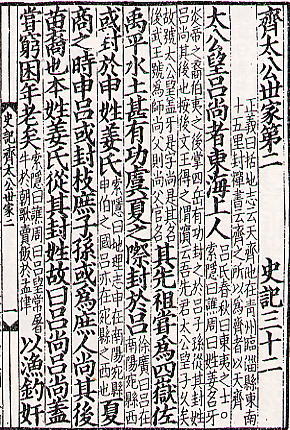 齊太公世家第二　史記三十二
正義曰括地志云天齊池在青州臨淄縣東南
十五里封禪書云齊之所以為齊者以天齊
太公望呂尚者東海上人
索隱曰譙周曰姓姜名牙
炎帝之裔伯夷之後掌四岳有功封之於呂子孫從其封姓
尚其後也按後文王得之渭濱云吾先君太公望子久矣
故號太公望蓋牙是字尚是其名
後武王號為師尚父
其先祖嘗為四嶽佐
禹平水土甚有功虞夏之際封於呂
徐廣曰呂在南陽宛縣西
或封於申姓姜氏
索隱曰地理志申在南陽宛縣
申伯之國呂亦在宛縣之西也
夏
商之時申呂或封枝庶子孫或為庶人尚其後
苗裔也本姓姜氏從其封姓故曰呂尚呂尚蓋
嘗窮困年老矣
索隱曰譙周曰呂望常屠
牛於朝歌賣飯於孟津
以漁釣奸
史記齊太公世家二
一